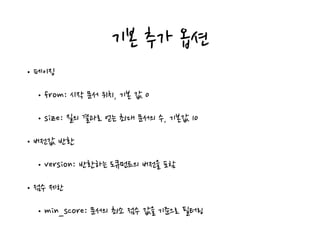 기본 추가 옵션
• 페이징
• from: 시작 문서 위치, 기본 값 0
• size: 질의 결과로 얻는 최대 문서의 수, 기본값 10
• 버전값 반환
• version: 반환하는 도큐먼트의 버전을 포함
• 점수 제한
• min_score: 문서의 최소 점수 값을 기준으로 필터링